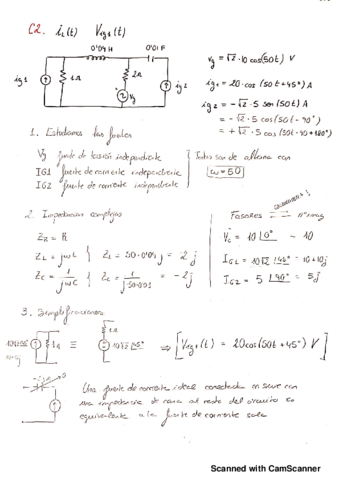 C2. iL(t) Vig1(t)
0'04 H 0'01 F
ig1 1Ω 2Ω Vg ig2
Vg = √2·10 cos(50t) V
ig1 = 20·cos(50t+45º) A
ig2 = -√2·5 sen(50t) A
= -√2·5 cos(50t-90º)
= +√2·5 cos(50t-90+180º)
1. Estudiamos las fuentes
Vg fuente de tensión independiente
IG1 fuente de corriente independiente
IG2 fuente de corriente independiente
Todas son de alterna con
ω=50
2. Impedancias complejas
ZR = R
ZL = jωL ZL = 50·0'04j = 2j
ZC = 1/jωC ZC = 1/j50·0'01 = -2j
Fasores
VG = 10|0º — 10
IG1 = 10√2|45º — 10+10j
IG2 = 5|90º = 5j
3. Simplificaciones
1Ω ≡ 1Ω 10√2|45º ⇒ [Vig1(t) = 20cos(50t+45º) V]
Una fuente de corriente ideal conectada en serie con
una impedancia de cara al resto del circuito es
equivalente a la fuente de corriente sola
Scanned with CamScanner